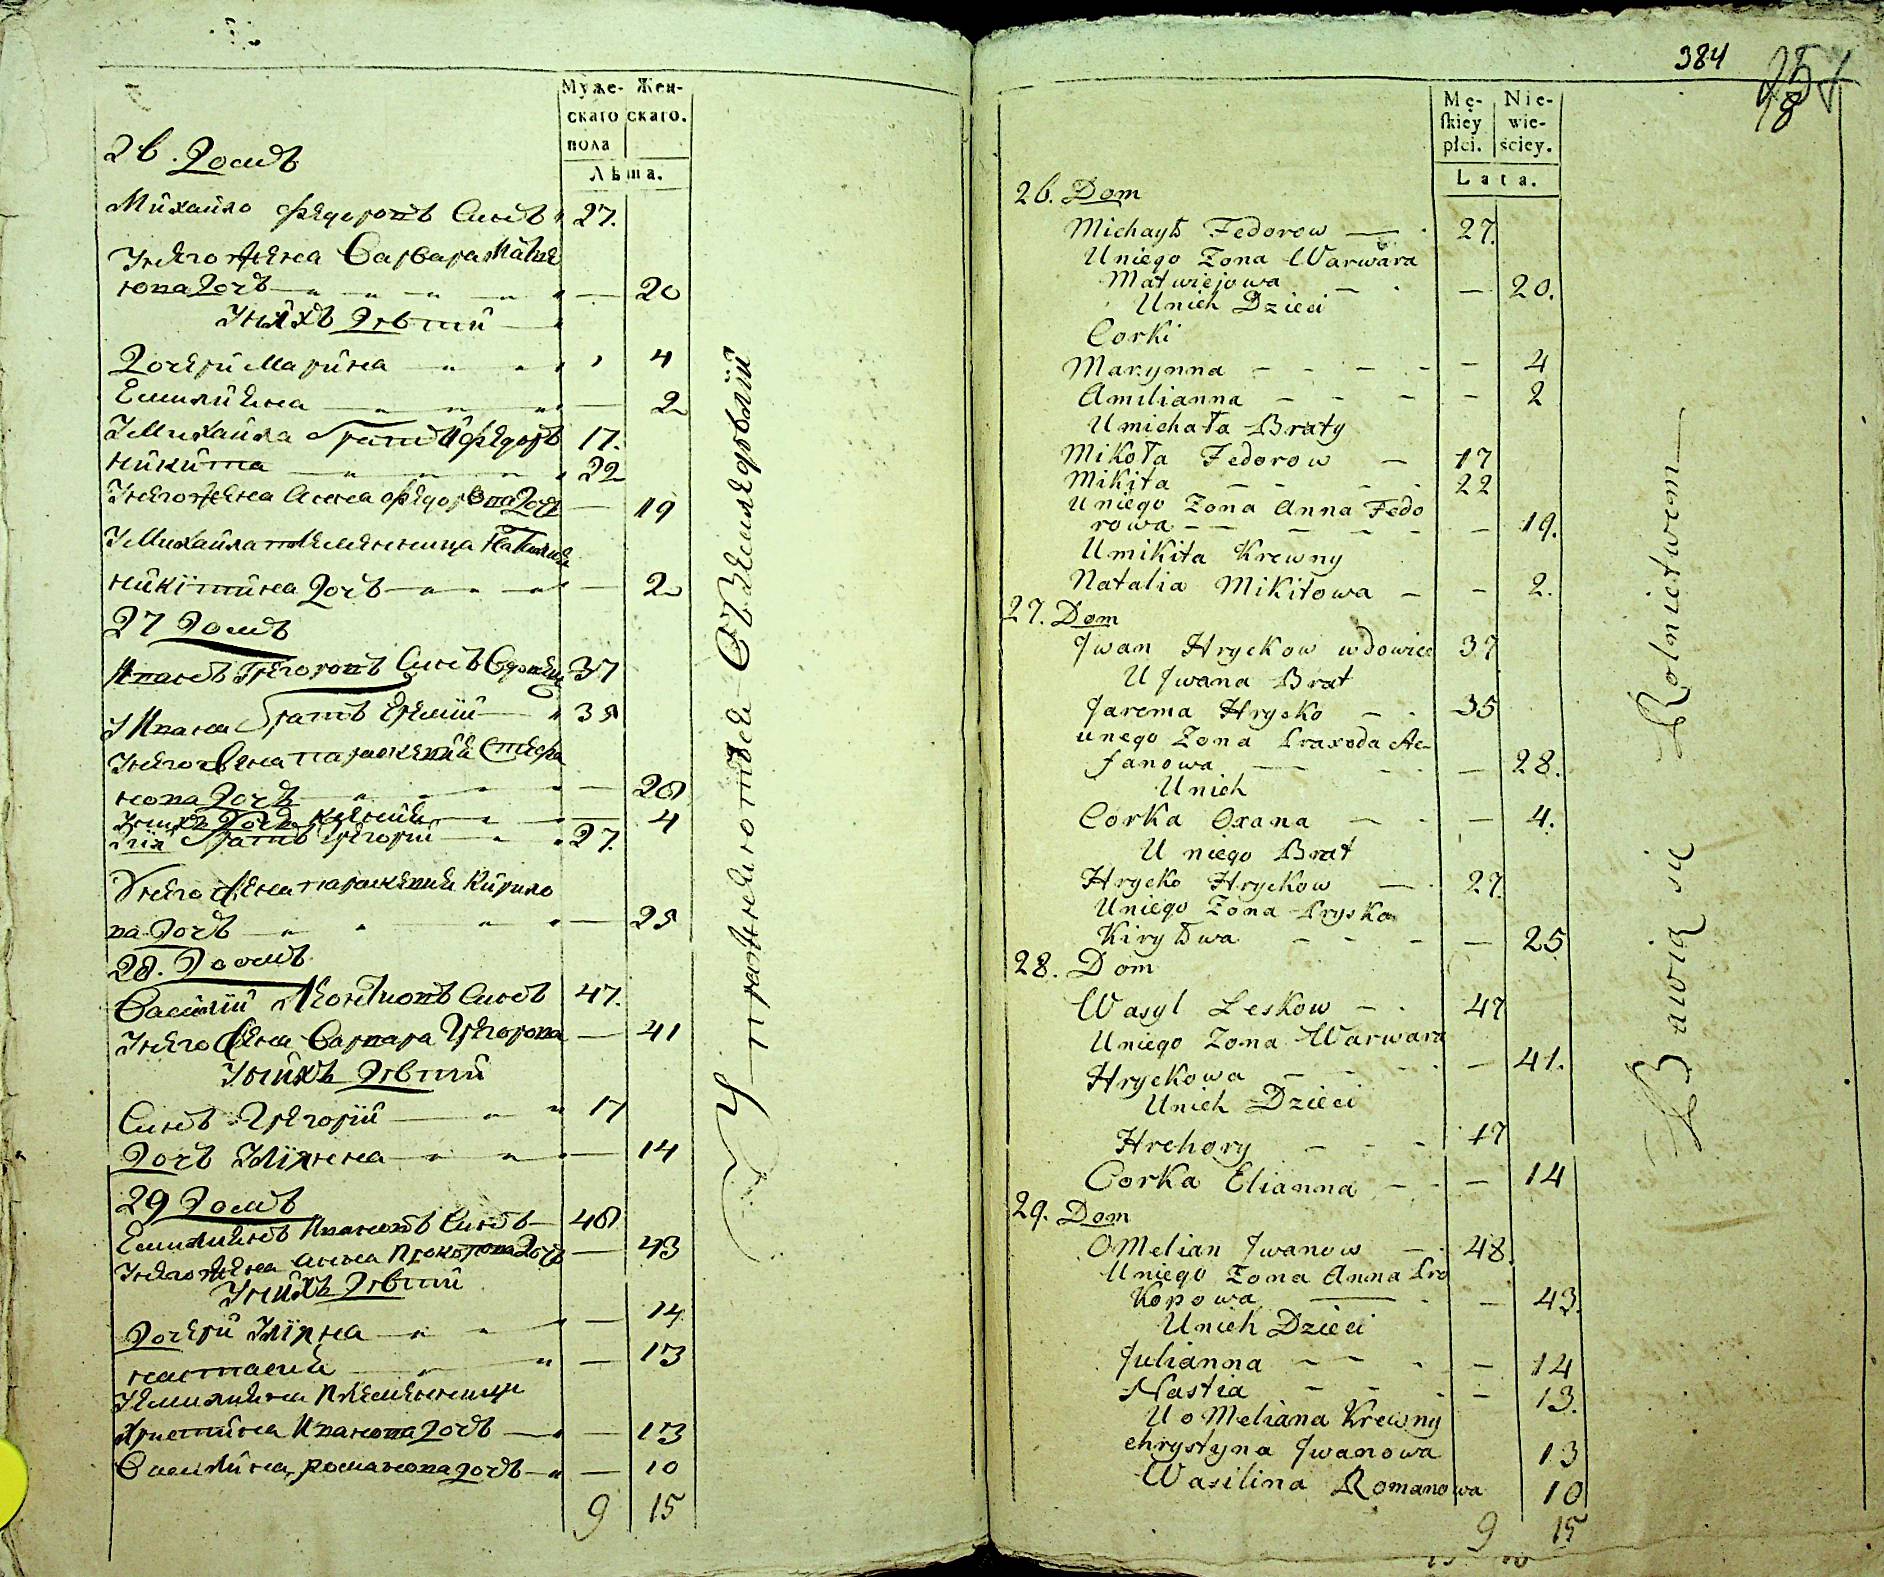 Муже-
скаго
пола
Жен-
скаго.
Лѣта.
26. Домъ
Михайло Федоровъ Синъ 27.
Унего жена Варвара Матвѣ
ева дочъ — 20
Унихъ дѣтки
Дочери Марина 4
Емилияна — 2
У Михайла братъ Федоръ 17.
Никита 22
Унего жена Анна Федорова дочъ — 19
У Михайла племенница Наталия
Никитина дочъ — 2
27 Домъ
Иванъ Григоровъ Синъ Вдовецъ 37
У Ивана братъ Еремий 35
Унего жена параскевия Стефа
нова дочъ — 28
Унихъ дочъ Ксения — 4
братъ Григорий 27.
Унего жена параскевия Кирило
ва дочъ — 25
28. Домъ
Василий Леонтиовъ Синъ 47.
Унего жена Варвара Григорова — 41
Унихъ дѣтки
Синъ Григорий 17
дочъ Улiянна — 14
29 Домъ
Емилиянъ Ивановъ Синъ 48
Унего жена Анна Прокопова дочъ — 43
Унихъ дѣтки
Дочери Улiяна — 14
настасия — 13
Уемилияна племенници
Христина Иванова дочъ — 13
Василина романова дочъ — 10
9 15
Упражняются вземледелии
384
Mę-
ſkiey
płci.
Nie-
wie-
ściey.
Lata.
26. Dom
Michayło Fedorow — 27.
Uniego Zona Warwara
Matwiejowa — 20.
Unich Dzieci
Corki
Marynna — 4
Amilianna — 2
Umichała Braty
Mikoła Fedorow — 17
Mikita 22
Uniego Zona Anna Fedo
rowa — 19.
Umikita Krewny
Natalia Mikitowa — 2.
27. Dom
Jwan Hryckow wdowiec 37
U Jwana Brat
Jarema Hrycko — 35
unego Zona Praxeda Ste-
fanowa — 28.
Unich
Corka Oxana — 4.
U niego Brat
Hrycko Hryckow — 27.
Uniego Zona Pryska
Kiryłwa — 25
28. Dom
Wasyl Leskow — 47
Uniego Zona Warwara
Hryckowa — 41.
Unich Dzieci
Hrehory — 17
Corka Elianna — 14
29. Dom
OMelian Jwanow — 48.
Uniego Zona Anna Pro
Kopowa — 43.
Unich Dzieci
Julianna — 14
Nastia — 13.
U oMeliana Krewny
chrystyna Jwanowa 13
Wasilina Romanowa 10
9 15
Bawią się Rolnictwem